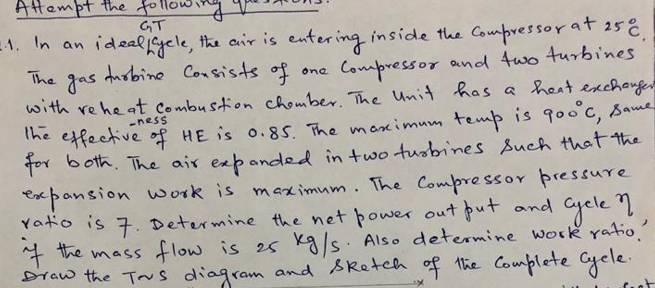 Attempt the following questions.
GT
1. In an ideal cycle, the air is entering inside the compressor at 25°C.
The gas turbine Consists of one Compressor and two turbines
with reheat Combustion chomber. The Unit has a heat exchanger
-ness
The effective of HE is 0.85. The maximum temp is 900°C, Same
for both. The air expanded in two turbines such that the
expansion work is maximum. The Compressor pressure
ratio is 7. Determine the net power out put and cycle η
if the mass flow is 25 kg/s. Also determine work ratio.
Draw the T vs S diagram and Sketch of the Complete cycle.